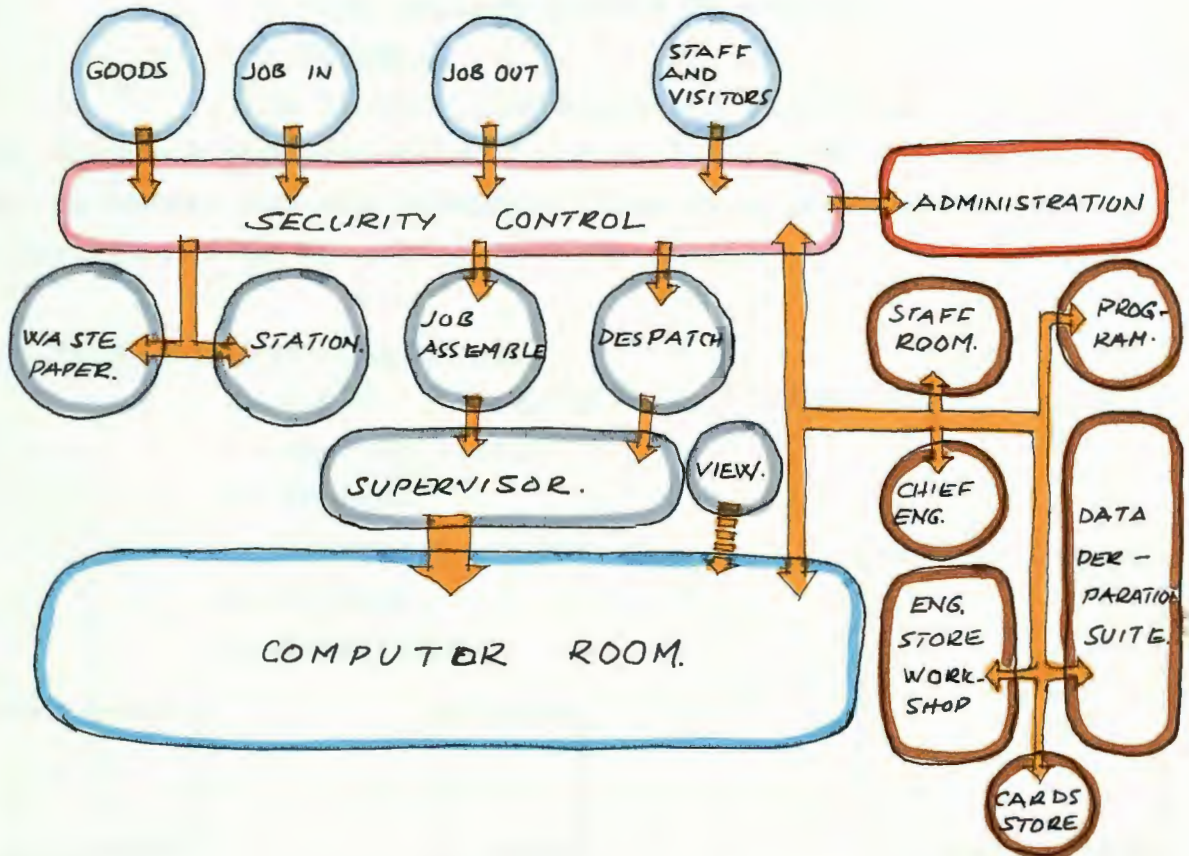 GOODS
JOB IN
JOB OUT
STAFF
AND
VISITORS
SECURITY CONTROL
ADMINISTRATION
WASTE
PAPER.
STATION.
JOB
ASSEMBLE
DESPATCH
STAFF
ROOM.
PROG-
RAM.
SUPERVISOR.
VIEW.
CHIEF
ENG.
DATA
DER-
PARATION
SUITE.
ENG.
STORE
WORK-
SHOP
COMPUTOR ROOM.
CARDS
STORE